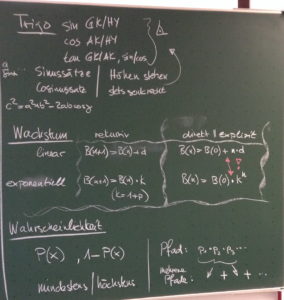 Trigo sin GK/HY
cos AK/HY
tan GK/AK, sin/cos
Sinussätze / Höhen stehen
Cosinussatz / stets senkrecht
c² = a²+b² - 2ab cos γ
Wachstum rekursiv direkt || explizit
linear B(n+1) = B(n) + d B(n) = B(0) + n·d
exponentiell B(n+1) = B(n) · k B(n) = B(0) · kⁿ
(k = 1+p)
Wahrscheinlichkeit
P(x) , 1 - P(x) Pfad: p₁ · p₂ · p₃ ...
mindestens / höchstens mehrere Pfade: + + ...